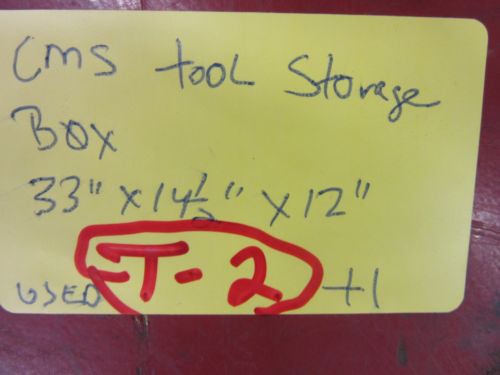 CMS tool Storage
Box
33" x 14 1/2" x 12"
USED T-2 +1